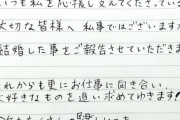 いつも私を応援し支えてくださっている
大切な皆様へ 私事ではございますが
結婚した事をご報告させていただきま
これからも更にお仕事に向き合い、
大好きなものを追い求めてゆきます!